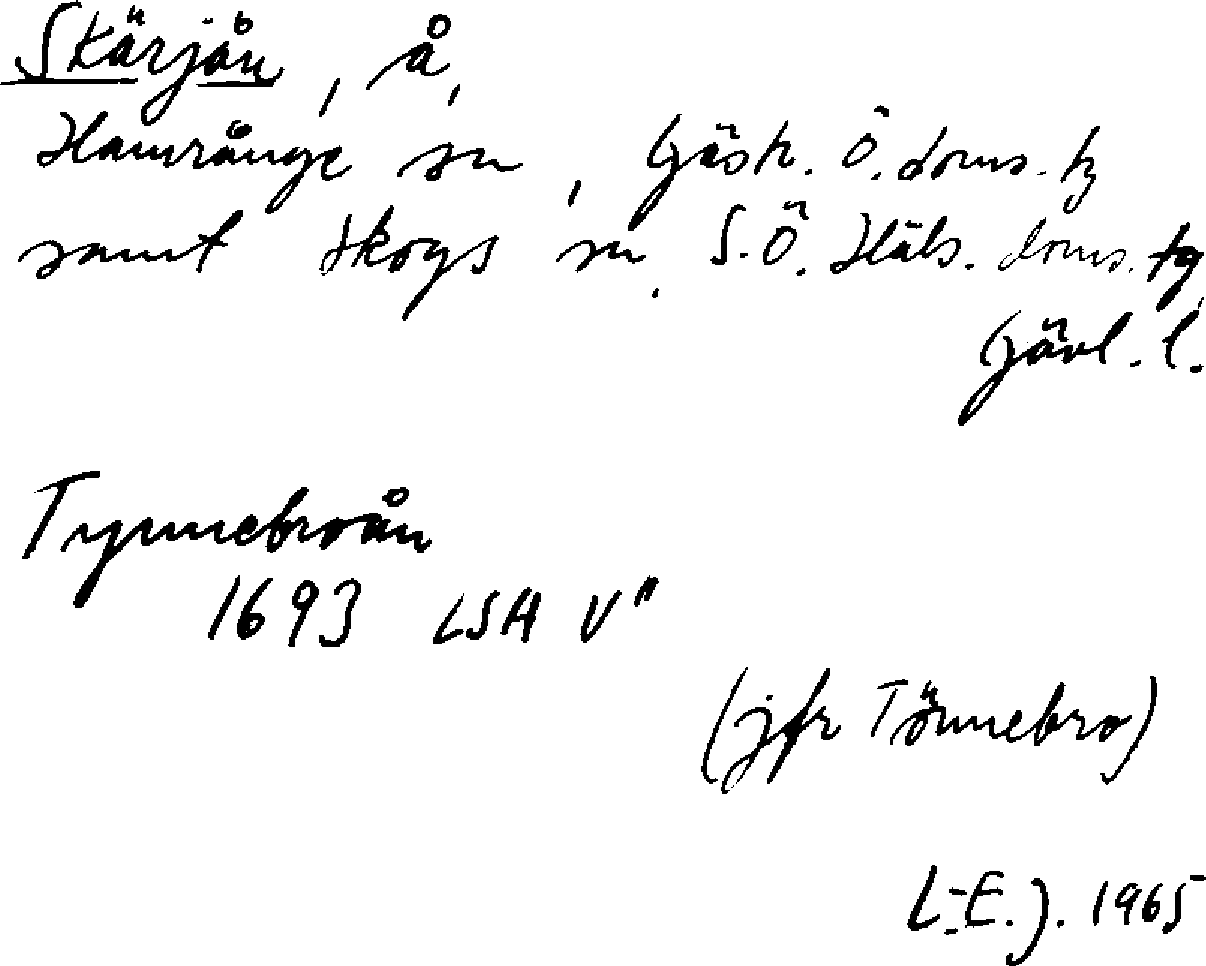 Skärjån, å,
Hamrånge sn, Gästr. Ö. doms. tg
samt Skogs sn. S.Ö. Häls. doms. tg,
Gävl. l.
Tynnebroån
1693 LSH V"
(jfr Tönnebro)
L-E. J. 1965